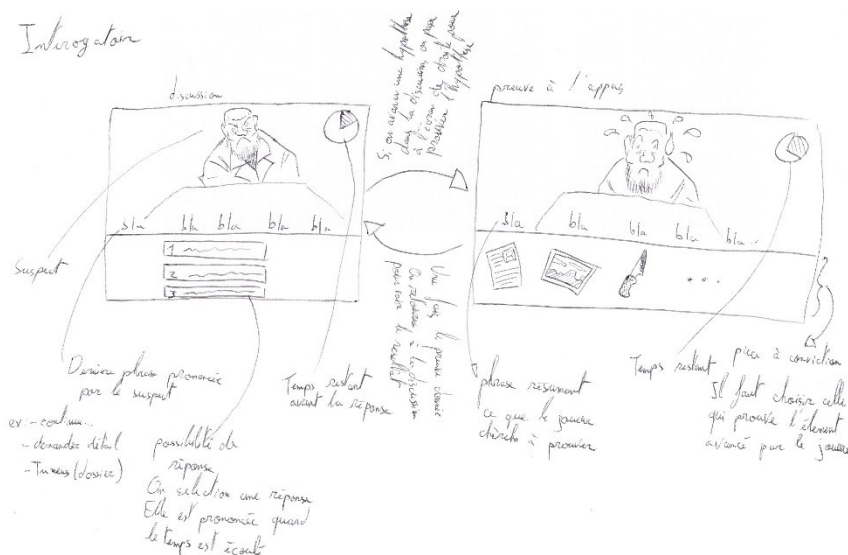 Interogatoir
discussion
bla bla bla bla bla
1
2
3
Suspect
Dernière phrase prononcée
par le suspect
ex - continu...
- demander détail
- Tu mens (dossier)
possibilité de
réponse
On sélection une réponse
Elle est prononcée quand
le temps est écoulé
Temps restant
avant la réponse
Si on avance une hypothèse
dans la discussion, on passe
à l'écran de droite pour
prouver l'hypothèse
Une fois la preuve donnée
On retourne à la discussion
pour voir le résultat
preuve à l'appuis
bla bla bla bla bla...
...
phrase résumant
ce que le joueur
cherche à prouver
Temps restant
pièce à conviction
Il faut choisir celle
qui prouve l'élément
avancé par le joueur